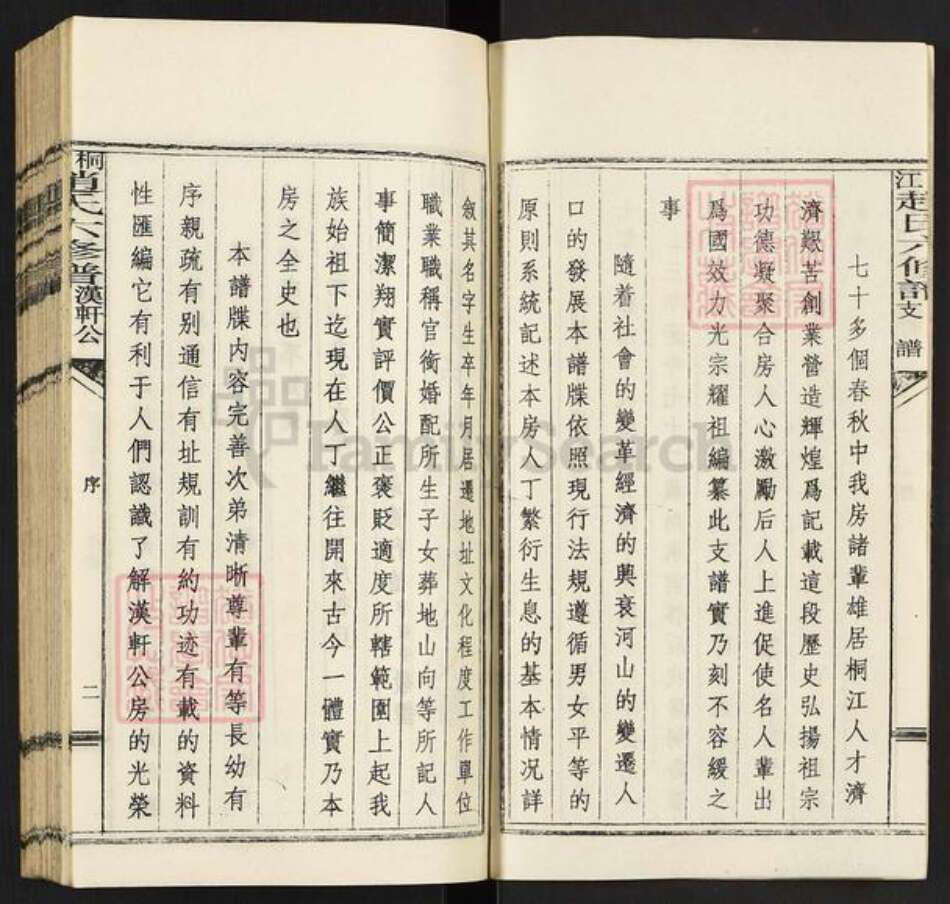 江趙氏六修譜支 譜
七十多個春秋中我房諸輩雄居桐江人才濟
濟艱苦創業營造輝煌爲記載這段歷史弘揚祖宗
功德凝聚合房人心激勵后人上進促使名人輩出
爲國效力光宗耀祖編纂此支譜實乃刻不容緩之
事
隨着社會的變革經濟的興衰河山的變遷人
口的發展本譜牒依照現行法規遵循男女平等的
原則系統記述本房人丁繁衍生息的基本情况詳
敘其名字生卒年月居遷地址文化程度工作單位
職業職稱官銜婚配所生子女葬地山向等所記人
事簡潔翔實評價公正褒貶適度所轄範圍上起我
族始祖下迄現在人丁繼往開來古今一體實乃本
房之全史也
本譜牒内容完善次弟清晰尊輩有等長幼有
序親疏有别通信有址規訓有約功迹有載的資料
性匯編它有利于人們認識了解漢軒公房的光榮
桐趙氏六修譜漢軒公
序
二
FamilySearch